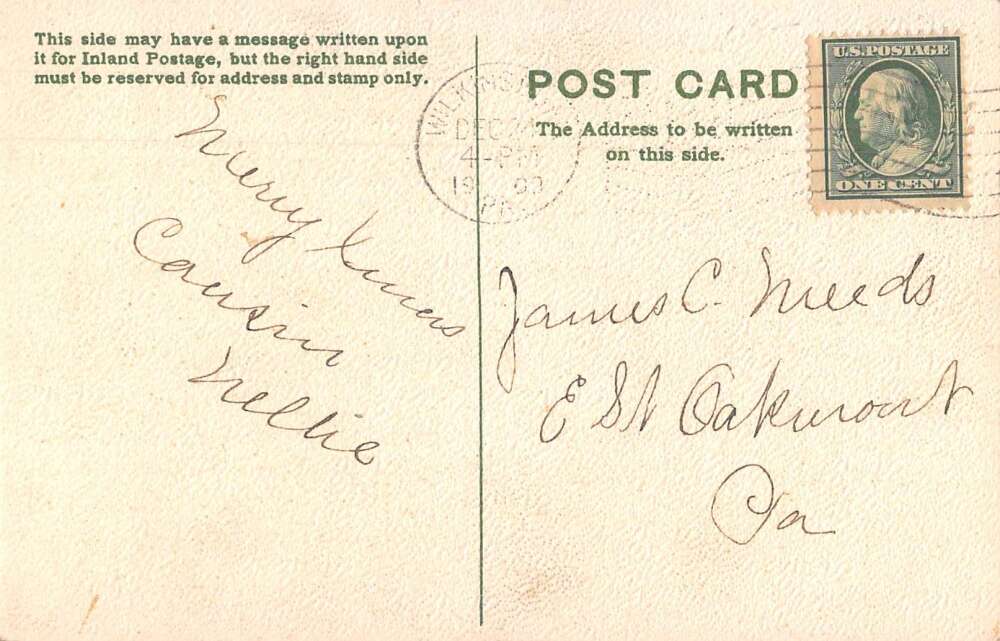 This side may have a message written upon
it for Inland Postage, but the right hand side
must be reserved for address and stamp only.
POST CARD
The Address to be written
on this side.
WILKINS
DEC
4-PM
1909
PA
U.S. POSTAGE
ONE CENT
Merry Xmas
Cousin
Nellie
James C. Meeds
E St Oakmont
Pa